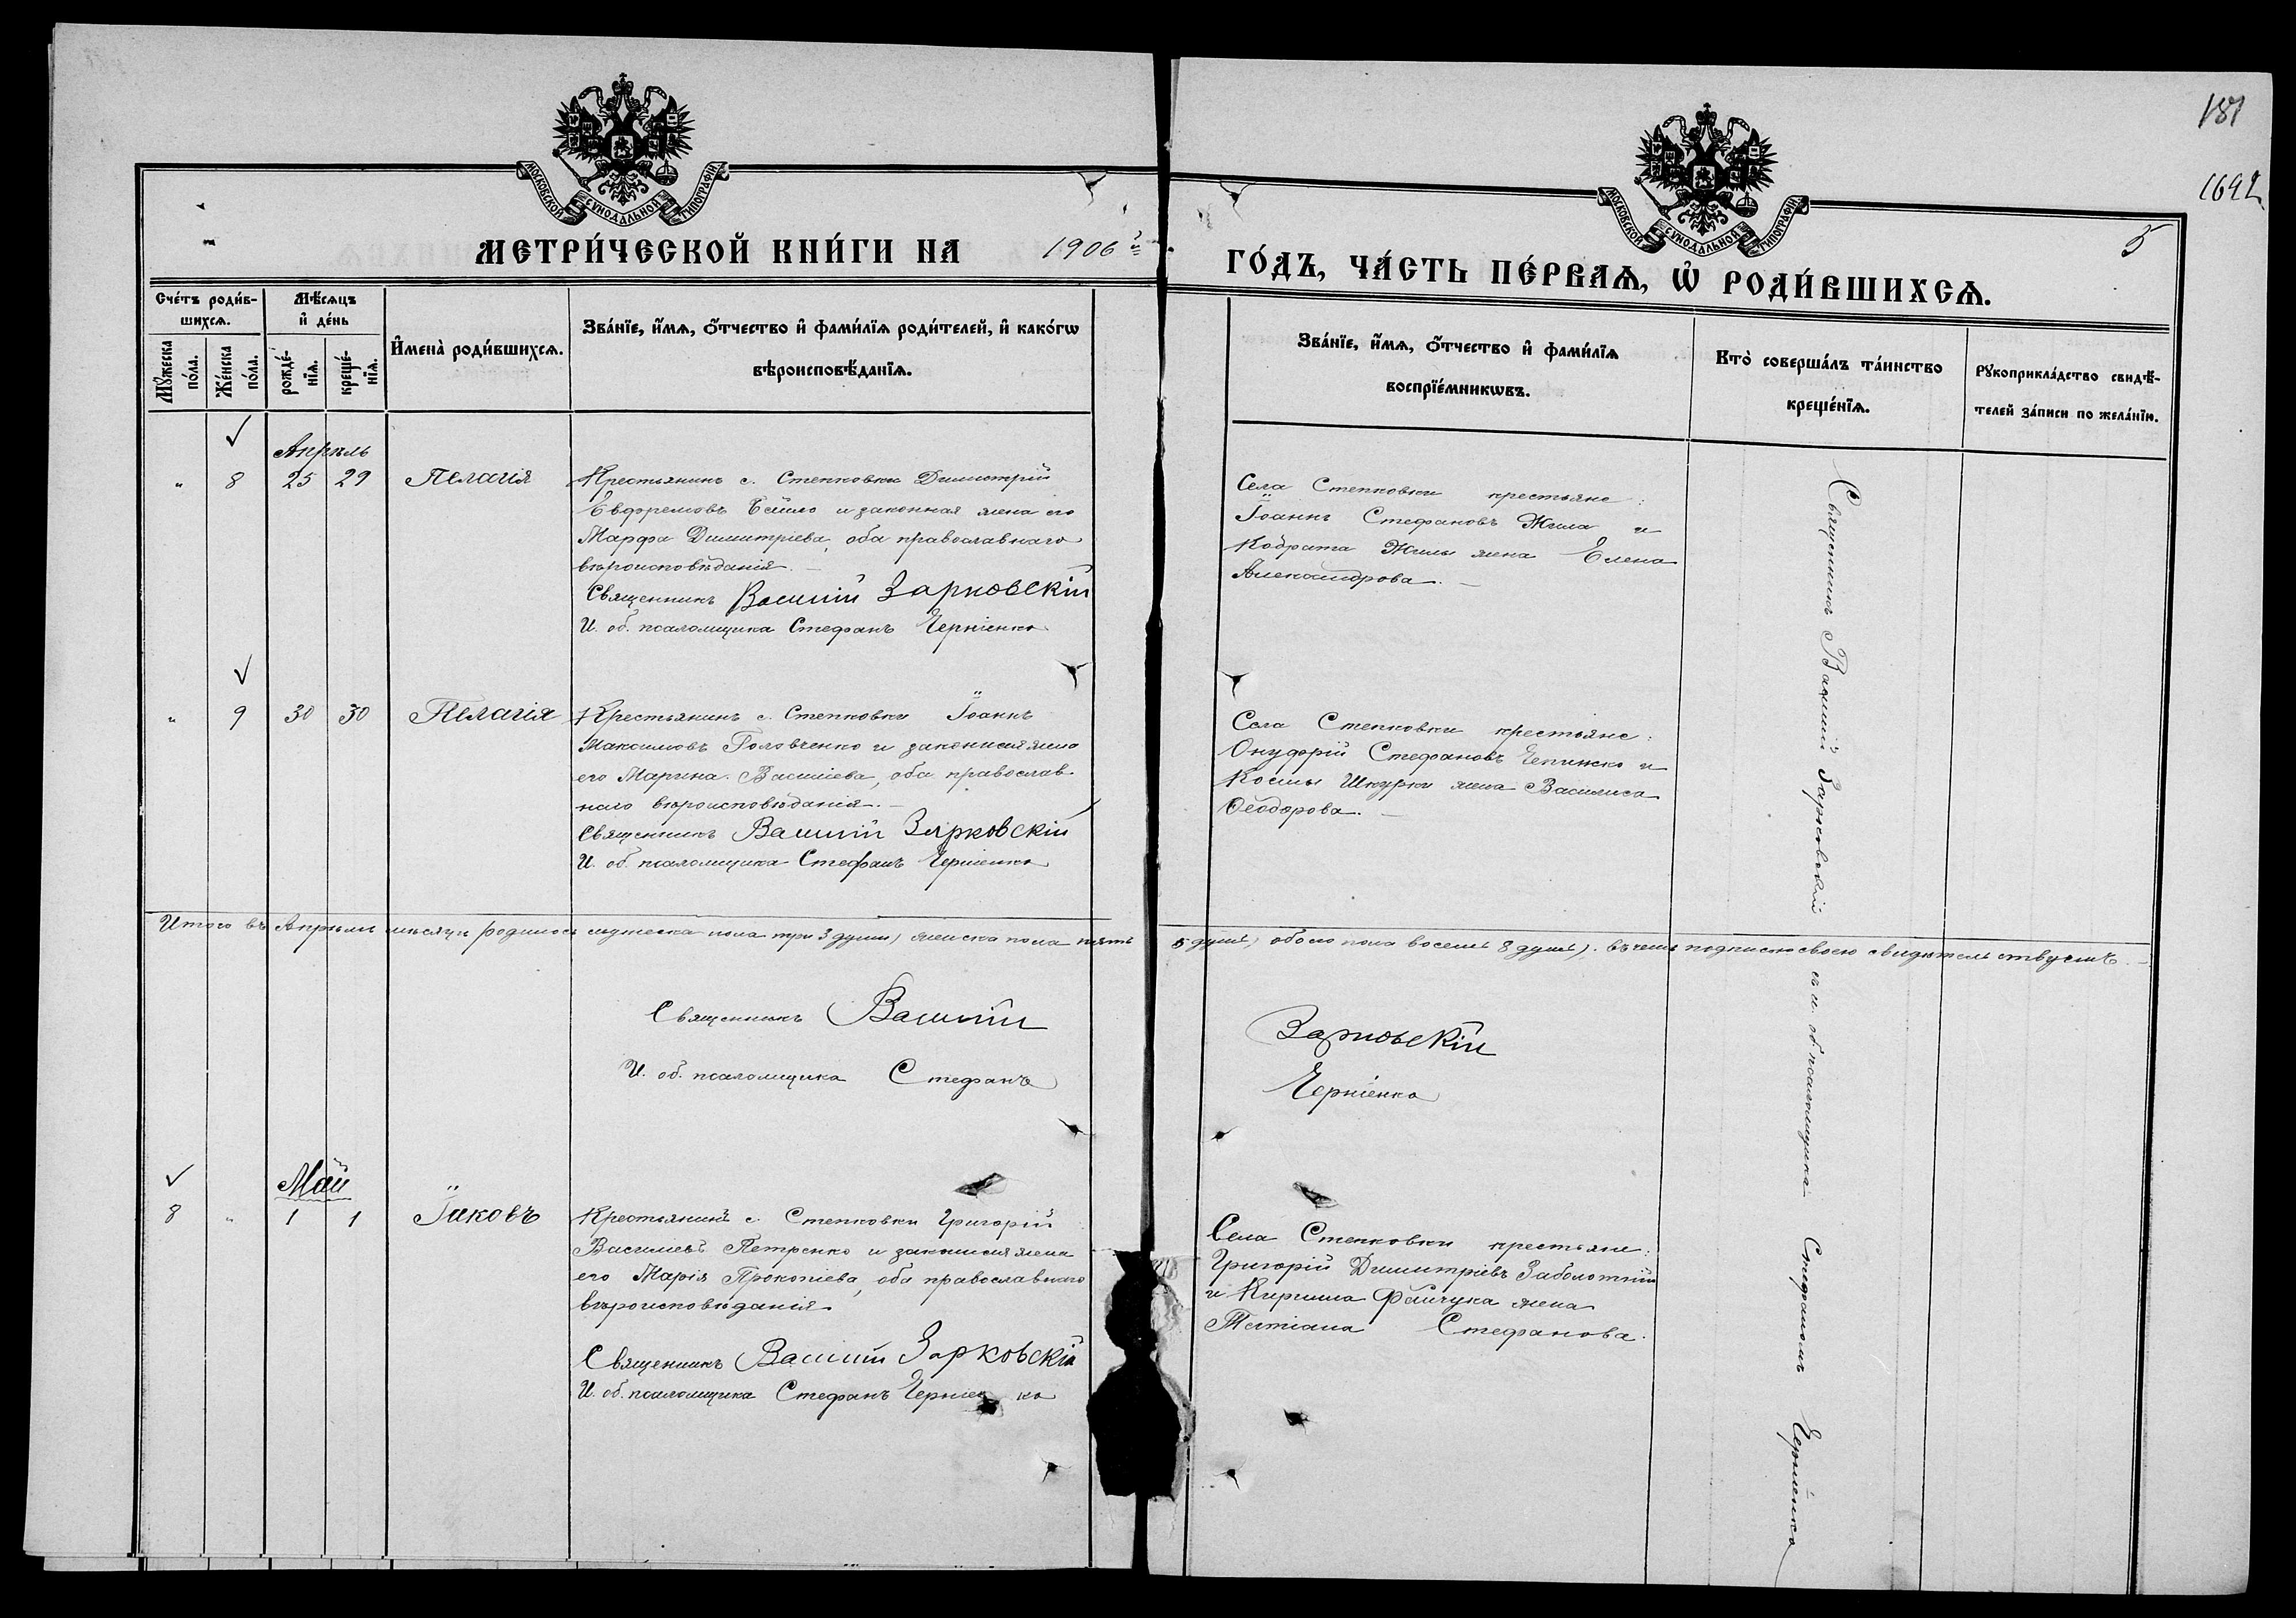 181
1692
5
МОСКОВСКОЙ СѴНОДАЛЬНОЙ ТИПОГРАФІИ
МОСКОВСКОЙ СѴНОДАЛЬНОЙ ТИПОГРАФІИ
МЕТРИ́ЧЕСКОЙ КНИ́ГИ НА 1906 й
ГО́ДЪ, ЧА́СТЬ ПЕ́РВАѦ, Ѡ҆ РОДИ́ВШИХСѦ.
Сче́тъ роди́в-
шихсѧ.
Мꙋ́жеска по́ла.
Же́нска по́ла.
Мѣ́сѧцъ
и҆ де́нь
рожде́-
нїѧ.
креще́-
нїѧ.
И҆мена̀ роди́вшихсѧ.
Зва́нїе, и҆́мѧ, ѻ҆́тчество и҆ фами́лїѧ роди́телей, и҆ како́гѡ
вѣроисповѣ́данїѧ.
Зва́нїе, и҆́мѧ, ѻ҆́тчество и҆ фами́лїѧ
воспрїе́мникѡвъ.
Кто̀ соверша́лъ та́инство
креще́нїѧ.
Рꙋкоприкла́дство свидѣ́-
телей за́писи по жела́нїю.
Апрѣль
" 8 25 29 Пелагія
Крестьянинъ с. Степковки Димитрій
Евфремовъ Бейло и законная жена его
Марфа Димитріева, оба православнаго
вѣроисповѣданія. —
Священникъ Василій Зарковскій
И. об. псаломщика Стефанъ Черніенко
Села Степковки крестьяне:
Іоаннъ Стефановъ Жила и
Кодрата Жилы жена Елена
Александрова. —
" 9 30 30 Пелагія
Крестьянинъ с. Степковки Іоаннъ
Максимовъ Головченко и законная жена
его Марина Василіева, оба православ-
наго вѣроисповѣданія. —
Священникъ Василій Зарковскій
И. об. псаломщика Стефанъ Черніенко
Села Степковки крестьяне:
Онуфрій Стефановъ Чепинско и
Космы Шкурки жена Василиса
Ѳеодорова. —
Итого въ Апрѣлѣ мѣсяцѣ родилось мужеска пола три 3 души) женска пола пять 5 душъ) обоего пола восемь 8 душъ). въ чемъ подписью своею свидѣтельствуемъ —
Священникъ Василій Зарковскій
И. об. псаломщика Стефанъ Черніенко
Май
8 " 1 1 Іаковъ
Крестьянинъ с. Степковки Григорій
Василіевъ Петренко и законная жена
его Марія Прокопіева, оба православнаго
вѣроисповѣданія
Священникъ Василій Зарковскій
И. об. псаломщика Стефанъ Черніенко
Села Степковки крестьяне:
Григорій Димитріевъ Заболотній
и Кирилла Файчука жена
Татіана Стефанова.
Священникъ Василій Зарковскій съ и. об. псаломщика Стефаномъ Черніенко